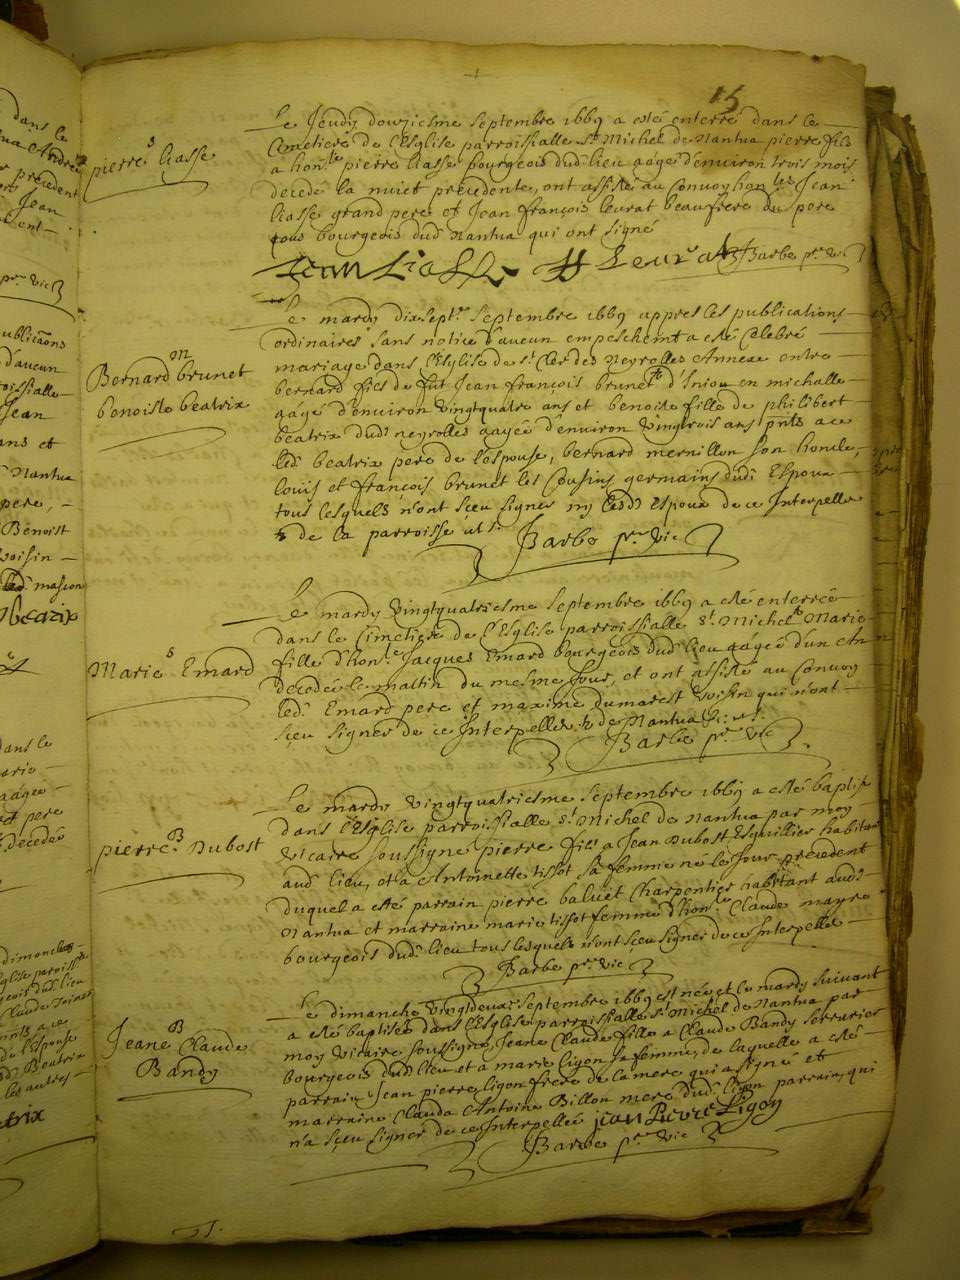 15
Le Jeudy douziesme septembre 1669 a esté enterré dans le
Cimetiere de l'Eglise parroissialle St. Michel de Nantua pierre fils
a hon.le pierre Liasse bourgeois dud. lieu aagé d'environ trois mois
decedé la nuict precedente, ont assisté au Convoy hon.les Jean
Liasse grand pere et Jean françois leurat beaufrere du pere
tous bourgeois dud. Nantua qui ont signé
pierre Liasse
S
Jean Liasse Leurat Barbe pr. vic
Le mardy dixsept.e septembre 1669 appres les publications
ordinaires sans notice d'aucun empeschem.t a esté Celebré
mariage dans l'Eglise de St. Cler des Neyrolles Annexe entre
bernard fils de fut Jean françois brunet d'Iniou en michalle
aagé d'environ vingtquatre ans et benoiste fille de philibert
beatrix dud. neyrolles aagée d'environ vingtrois ans pnts a ce
led. beatrix pere de l'espouse, bernard mermillon son honcle,
louis et françois brunet les Cousins germains dud. Espoux
tous lesquels n'ont sçeu signer ny led. Espoux de ce Interpellé
de la parroisse ut s.
Barbe pr. vic
M
Bernard brunet
benoiste beatrix
Le mardy vingtquatriesme septembre 1669 a esté enterrée
dans le Cimetiere de l'Eglise parroissialle St. Michel Marie
fille d'hon.le Jacques Emard bourgeois dud. lieu aagée d'un An
decedée le mattin du mesme Jour, et ont assisté au Convoy
led. Emard pere et maxime dumarest voisin qui n'ont
sçeu signer de ce Interpellé de Nantua
Barbe pr. vic
S
Marie Emard
Le mardy vingtquatriesme septembre 1669 a esté baptisé
dans l'Eglise parroissialle St. Michel de Nantua par moy
vicaire soussigné pierre fils a Jean Dubost Esguillier habitant
aud. lieu, et a Antoinette tissot sa femme né le Jour precedent
duquel a esté parrain pierre baluet Charpentier habitant aud.
Nantua et marraine marie tissot femme d'hon.le Claude mayre
bourgeois dud. lieu tous lesquels n'ont sceu signer de ce Interpellé
Barbe pr. vic
B
pierre Dubost
Le dimanche vingtdeux septembre 1669 est née et le mardy suivant
a esté baptisée dans l'Eglise parroissialle St. michel de Nantua par
moy vicaire soussigné, Jeane Claude fille a Claude Bandy serrurier
bourgeois dud. lieu et a marie ligon sa femme, de laquelle a esté
parrain Jean pierre ligon frere de la mere qui a signé et
marraine Clauda Antoine Billon mere dud. ligon parrain, qui
n'a sçeu signer de ce Interpellée jean Pierre Ligon
Barbe pr. vic
B
Jeane Claude
Bandy